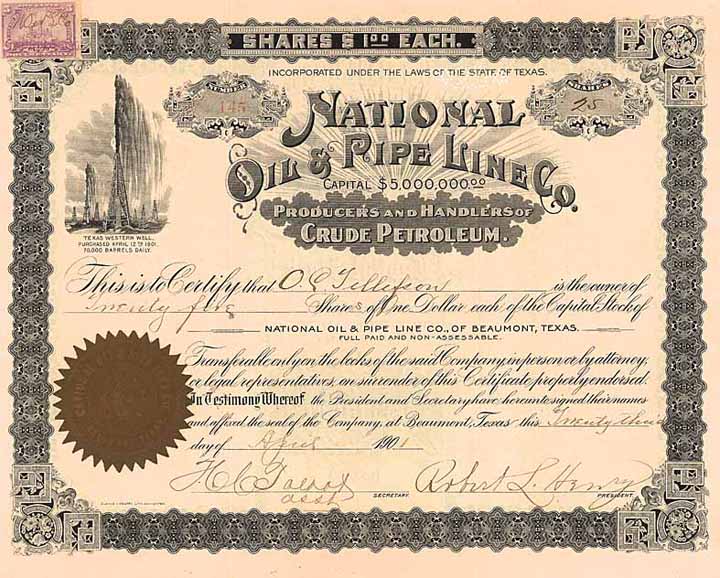 SHARES $1.00 EACH.
INCORPORATED UNDER THE LAWS OF THE STATE OF TEXAS.
NUMBER
145
SHARES
25
NATIONAL
OIL & PIPE LINE CO.
CAPITAL $5,000,000.00
PRODUCERS AND HANDLERS OF
CRUDE PETROLEUM.
TEXAS WESTERN WELL,
PURCHASED APRIL 12TH 1901.
70,000 BARRELS DAILY.
This is to Certify that O. C. Tillefson is the owner of
Twenty five Shares of One Dollar each of the Capital Stock of
NATIONAL OIL & PIPE LINE CO., OF BEAUMONT, TEXAS.
FULL PAID AND NON-ASSESSABLE.
Transferable only on the books of the said Company, in person or by attorney,
or legal representatives, on surrender of this Certificate properly endorsed.
In Testimony Whereof the President and Secretary have hereunto signed their names
and affixed the seal of the Company, at Beaumont, Texas this Twenty third
day of April 1901
Asst SECRETARY.
Robert L. Henry PRESIDENT.